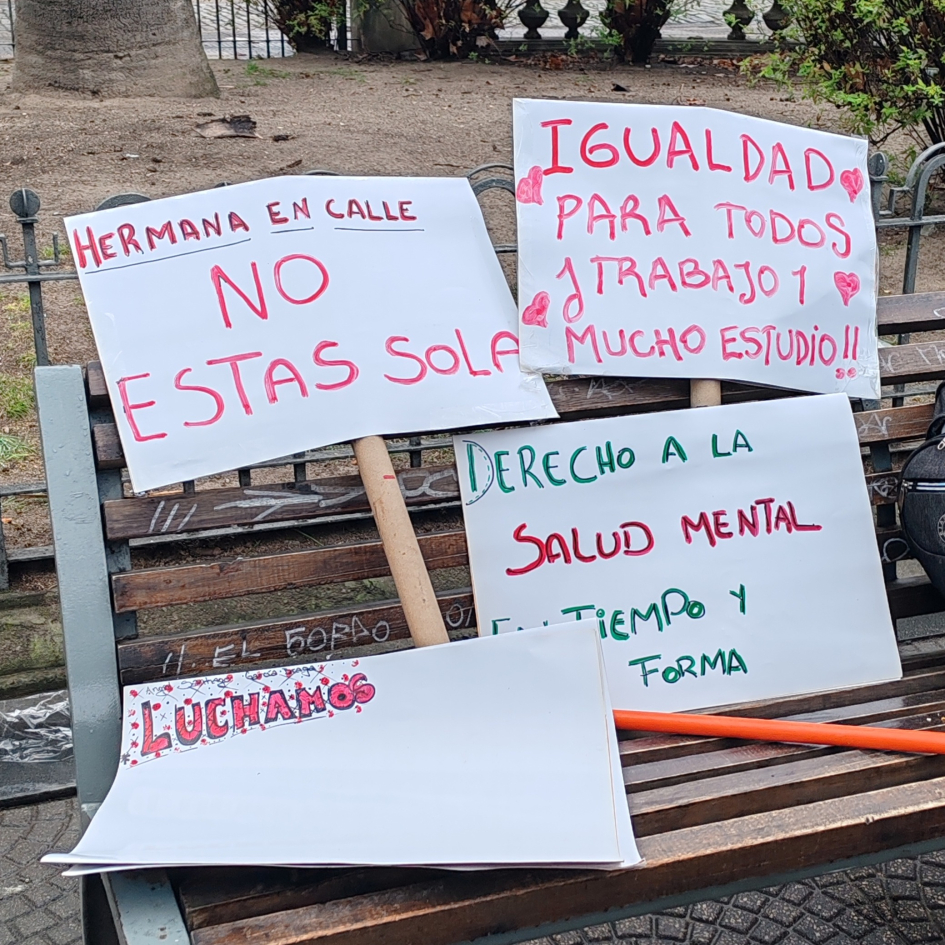 HERMANA EN CALLE
NO
ESTAS SOLA
IGUALDAD
PARA TODOS
y TRABAJO y
MUCHO ESTUDIO!!
DERECHO A LA
SALUD MENTAL
EN TIEMPO Y
FORMA
LUCHAMOS
H. EL BOFDO